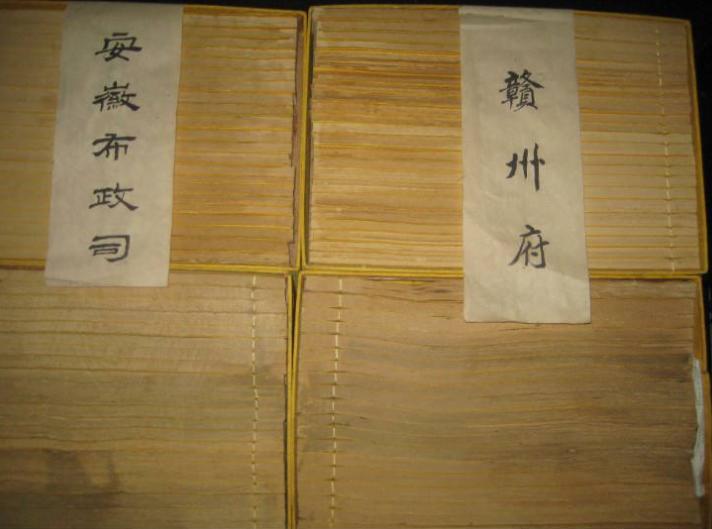 安徽布政司
贛州府